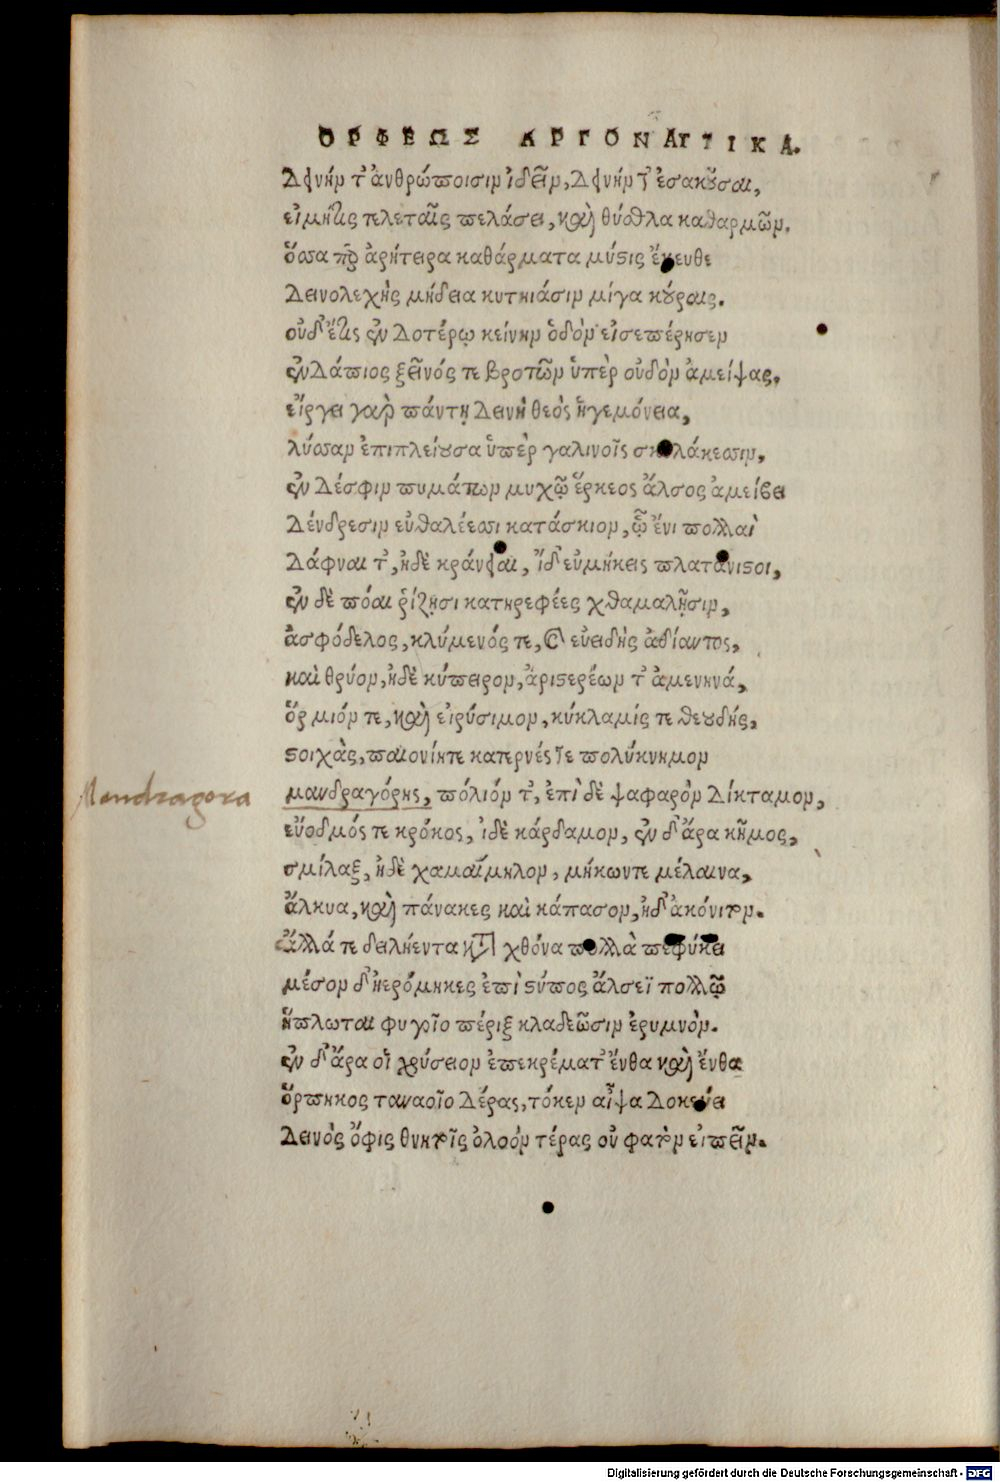 ΟΡΦΕΩΣ ΑΡΓΟΝΑΥΤΙΚΑ.
Δεινήν τ' ἀνθρώποισιν ἰδεῖν, δεινήν τ' ἐσακοῦσαι,
εἰ μήτις τελεταῖς πελάσει, καὶ θύσθλα καθαρμῶν.
ὅσσα περ ἀρήτειρα καθάρματα μύστις ἔκευθε
Δεινολεχὴς μήδεια κυτηιάσιν μίγα κούραις.
οὐδ' ἔτις ἐνδοτέρῳ κείνην ὁδὸν εἰσεπέρησεν
ἐνδάπιος ξεῖνός τε βροτῶν ὑπὲρ οὐδὸν ἀμείψας.
εἴργει γαρ πάντῃ δεινὴ θεὸς ἡγεμόνεια,
λύσσαν ἐπιπλείουσα ὑπὲρ γαλινοῖς σκυλάκεσσιν,
ἐν δέσφιν πυμάτων μυχῷ ἕρκεος ἄλσος ἀμείβει
Δένδρεσιν εὐθαλέεσσι κατάσκιον, ᾧ ἔνι πολλαὶ
Δάφναι τ', ἠδὲ κράνειαι, ἴδ' εὐμήκεις πλατάνιστοι,
ἐν δὲ πόαι ῥίζῃσι κατηρεφέες χθαμαλῇσιν,
ἀσφόδελος, κλύμενός τε, καὶ εὐειδὴς ἀδίαντος,
καὶ θρύον, ἠδὲ κύπειρον, ἀριστερέων τ' ἀμενηνά,
ὅρμιόν τε, καὶ εἰρύσιμον, κύκλαμίς τε θεουδής,
στοιχὰς, παιονίητε κατερνές τε πολύκνημον
μανδραγόρης, πόλιόν τ', ἐπὶ δὲ ψαφαρὸν δίκταμον,
Mandragora
εὔοδμός τε κρόκος, ἰδὲ κάρδαμον, ἐν δ' ἄρα κῆμος,
σμίλαξ, ἠδὲ χαμαίμηλον, μήκωντε μέλαινα,
ἄλκυα, καὶ πάνακες καὶ κάπασον, ἠδ' ἀκόνιτον.
ἄλλά τε δειλήεντα κατὰ χθόνα πολλὰ πεφύκει
μέσον δ' ἠερόμηκες ἐπὶ στύπος ἄλσεϊ πολλῷ
ἥπλωται φυγοῖο πέριξ κλαδεῶσιν ἐρυμνὸν.
ἐν δ' ἄρα οἳ χρύσειον ἐπεκρέματ' ἔνθα καὶ ἔνθα
ὅρπηκος ταναοῖο δέρας, τόκεν αἶψα δοκεύει
Δεινὸς ὄφις θνητοῖς ὀλοόν τέρας οὐ φατὸν εἰπεῖν.
Digitalisierung gefördert durch die Deutsche Forschungsgemeinschaft - DFG